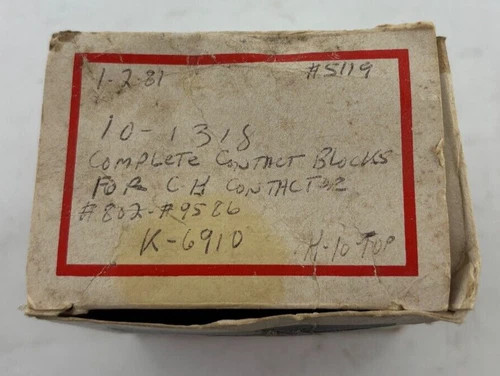 1-2-81 #5119
10-1318
COMPLETE CONTACT BLOCKS
FOR CH CONTACTOR
#802-#9586
K-6910 H-10-TOP